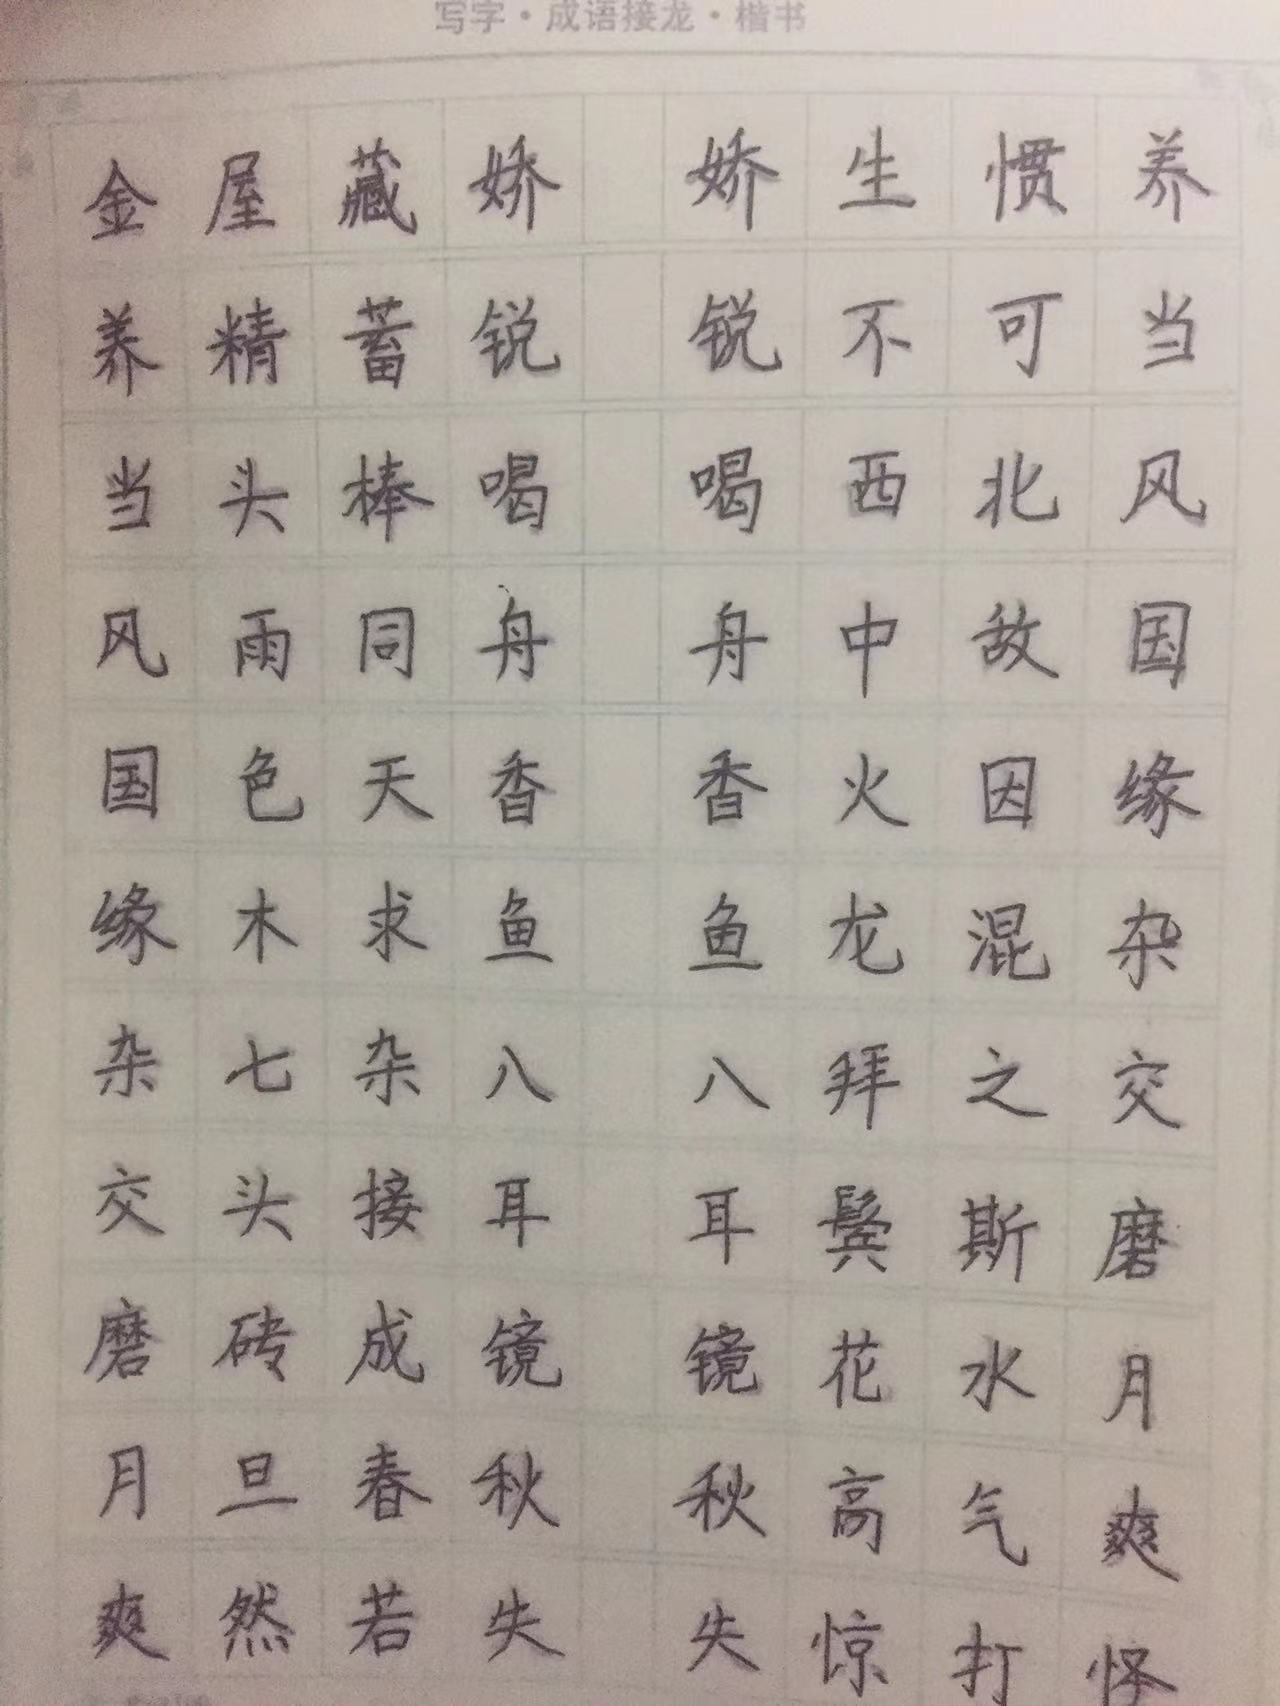 写字·成语接龙·楷书
金屋藏娇 娇生惯养
养精蓄锐 锐不可当
当头棒喝 喝西北风
风雨同舟 舟中敌国
国色天香 香火因缘
缘木求鱼 鱼龙混杂
杂七杂八 八拜之交
交头接耳 耳鬓斯磨
磨砖成镜 镜花水月
月旦春秋 秋高气爽
爽然若失 失惊打怪